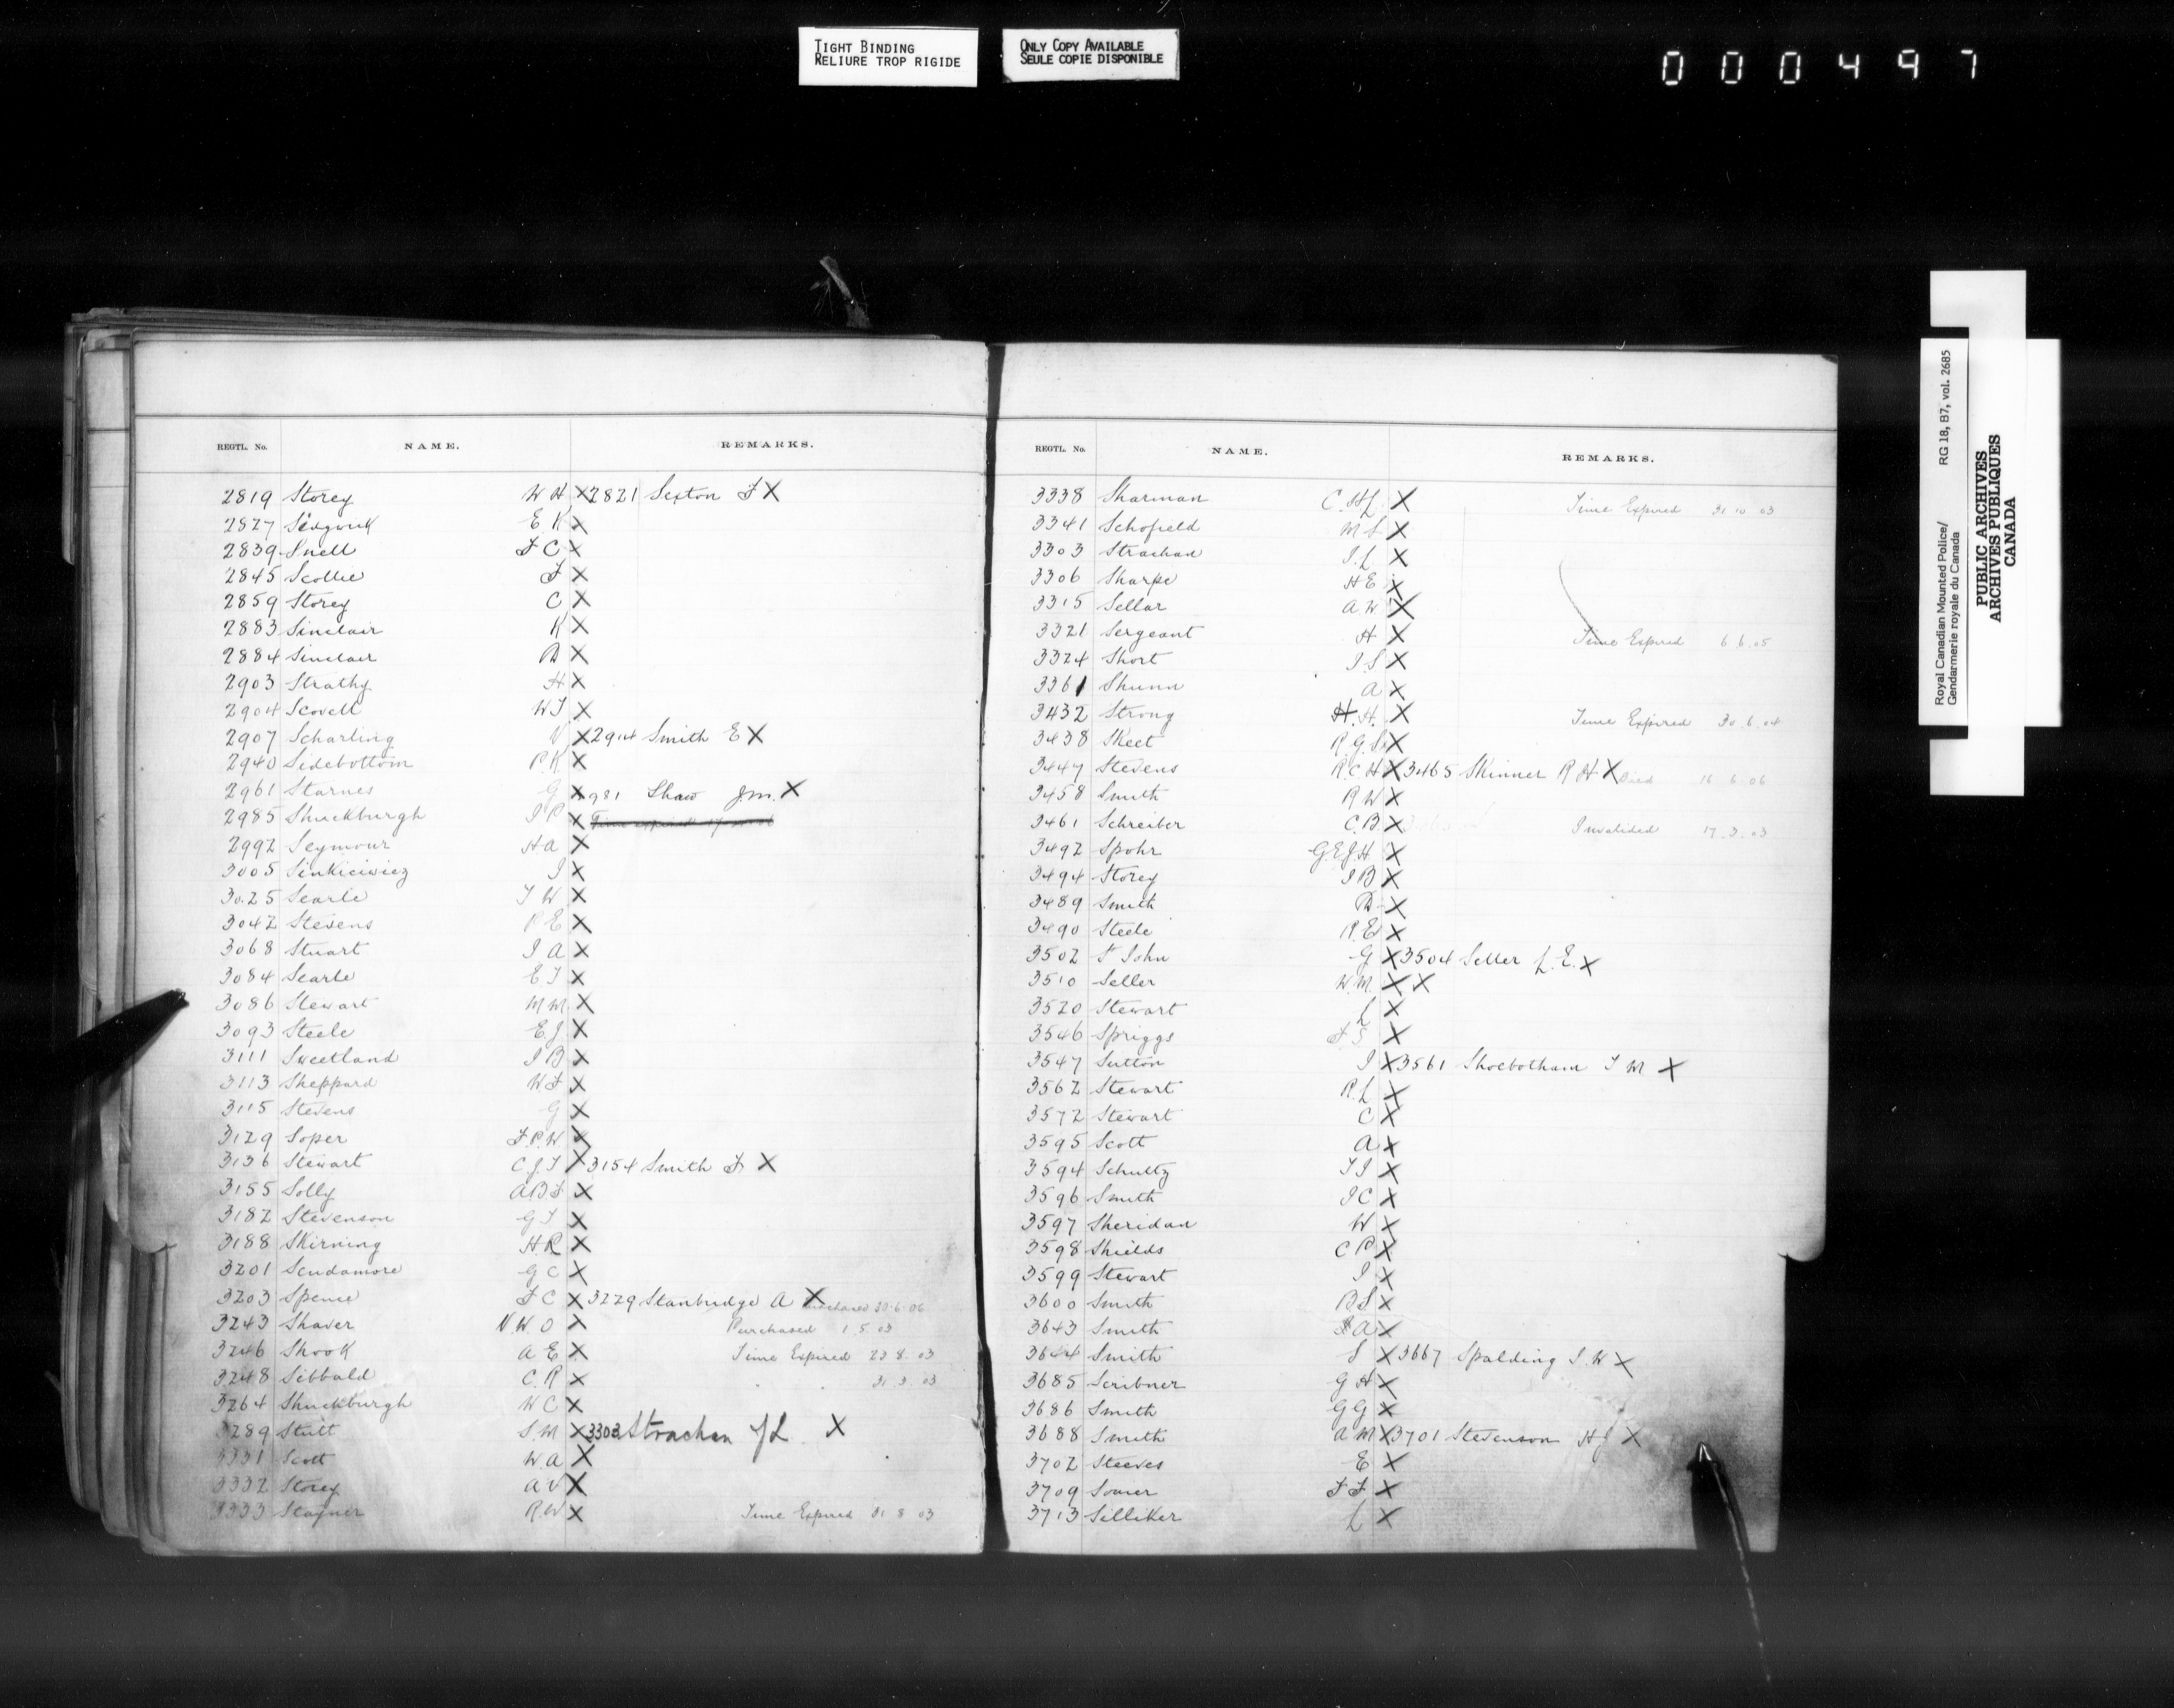 TIGHT BINDING
RELIURE TROP RIGIDE
ONLY COPY AVAILABLE
SEULE COPIE DISPONIBLE
000497
REGTL. No. NAME. REMARKS.
2819 Storey W H X 2821 Sexton F X
2827 Sedgwick E K X
2839 Snell F C X
2845 Scollie F X
2859 Storey C X
2883 Sinclair K X
2884 Sinclair D X
2903 Strathy H X
2904 Scovell W J X
2907 Scharling V X 2914 Smith E X
2940 Sidebottom P. K. X
2961 Starnes G X 2981 Shaw J.M. X
2985 Shuckburgh J P X
2992 Seymour H A X
3005 Sinkiciwicz J X
3025 Searle T W X
3042 Stevens P E X
3068 Stuart J A X
3084 Searle E T X
3086 Stewart M M. X
3093 Steele E. J X
3111 Sweetland J B X
3113 Sheppard W. F X
3115 Stevens G X
3129 Soper F. P. W X
3136 Stewart C J T X 3154 Smith F X
3155 Solly A B F X
3182 Stevenson G T X
3188 Skirning H. R X
3201 Scudamore G C X
3203 Spence F C X 3229 Stanbridge A X Purchased 30.6.06
3243 Shaver N. W. O X Purchased 1.5.03
3246 Shook A E X Time Expired 23.8.03
3248 Sibbald C. R X " " 31.3.03
3264 Shuckburgh W C X
3289 Stutt S. M X 3303 Strachan J L X
3331 Scott W. A X
3332 Storey A V X
3333 Stayner R. W X Time Expired 31 8 03
REGTL. No. NAME. REMARKS.
3338 Sharman C. H L. X Time Expired 31 10 03
3341 Schofield M S X
3303 Strachan J. L X
3306 Sharpe H E X
3315 Sellar A W X
3321 Sergeant H X Time Expired 6 6.05
3324 Short J. S X
3361 Shunn A X
3432 Strong H. H. X Time Expired 30.6.04
3438 Skeet R. G. S X
3447 Stevens R. C H X 3465 Skinner R H X Died 16 6 06
3458 Smith R W X
3461 Schreiber C. B X Invalided 17.3.03
3492 Spohr G. E. J. H. X
3494 Storey J B X
3489 Smith D X
3490 Steele R. E X
3502 St John G X 3504 Seller L. E. X
3510 Seller W. M. X X
3520 Stewart L X
3546 Spriggs F. S X
3547 Sutton J X 3561 Shoebotham T M X
3562 Stewart R. L X
3572 Stewart C X
3595 Scott A X
3594 Schultz T J X
3596 Smith J C X
3597 Sheridan W X
3598 Shields C P X
3599 Stewart J X
3600 Smith B S X
3643 Smith A X
3644 Smith S X 3667 Spalding J. W X
3685 Scribner G H X
3686 Smith G G X
3688 Smith A M X 3701 Stevenson H J X
3702 Steeves E X
3709 Somer F F X
3713 Silliker L X
Royal Canadian Mounted Police/
Gendarmerie royale du Canada
RG 18, B7, vol. 2685
PUBLIC ARCHIVES
ARCHIVES PUBLIQUES
CANADA